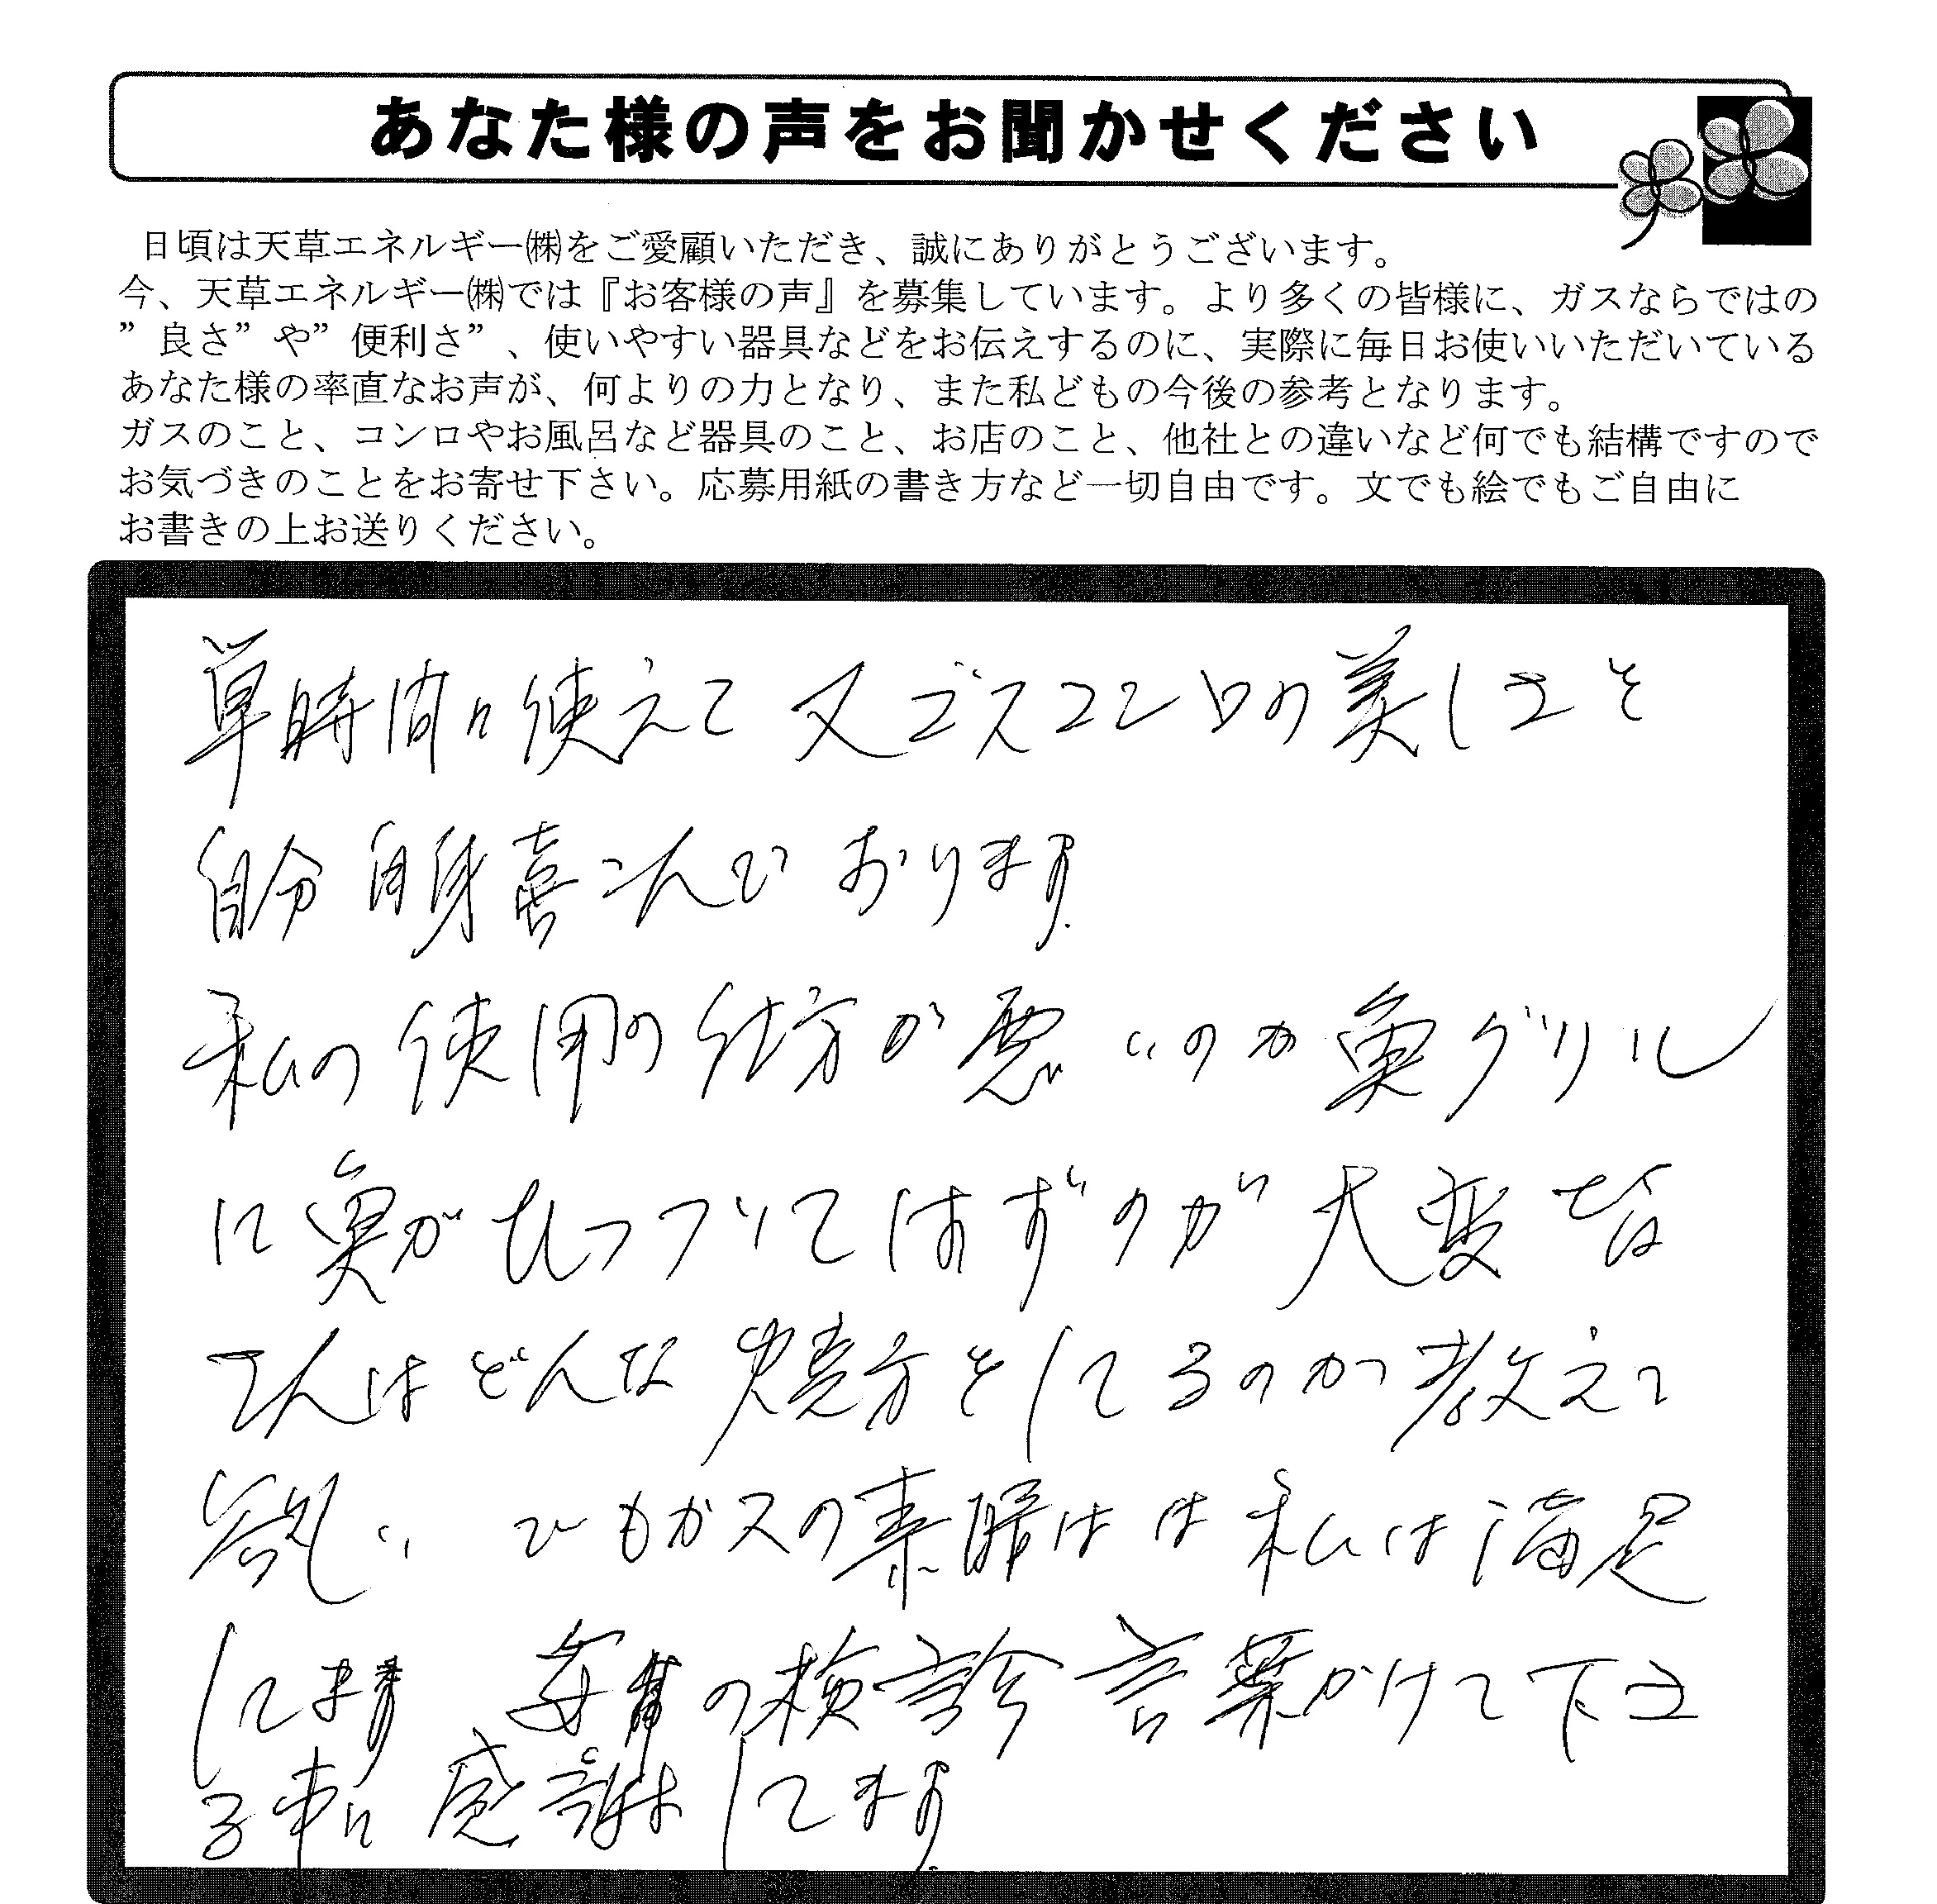 あなた様の声をお聞かせください
日頃は天草エネルギー㈱をご愛顧いただき、誠にありがとうございます。
今、天草エネルギー㈱では『お客様の声』を募集しています。より多くの皆様に、ガスならではの
”良さ”や”便利さ”、使いやすい器具などをお伝えするのに、実際に毎日お使いいただいている
あなた様の率直なお声が、何よりの力となり、また私どもの今後の参考となります。
ガスのこと、コンロやお風呂など器具のこと、お店のこと、他社との違いなど何でも結構ですので
お気づきのことをお寄せ下さい。応募用紙の書き方など一切自由です。文でも絵でもご自由に
お書きの上お送りください。
単時間に使えて 又ガスコンロの美しさを
自分自身喜こんでおります.
私の使用の仕方が悪いのか魚グリル
に魚がひっついてはずのが大変皆
さんはどんな焼方をしてるのか教えて
欲しい でもガスの素晴は 私は満足
してます 毎月の検診言葉かけて下さ
る事に感謝してます.